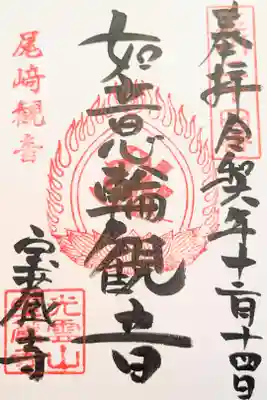 奉拝 令 年十二月十四日
如意輪観音
尾﨑観音
宝蔵寺
光雲山